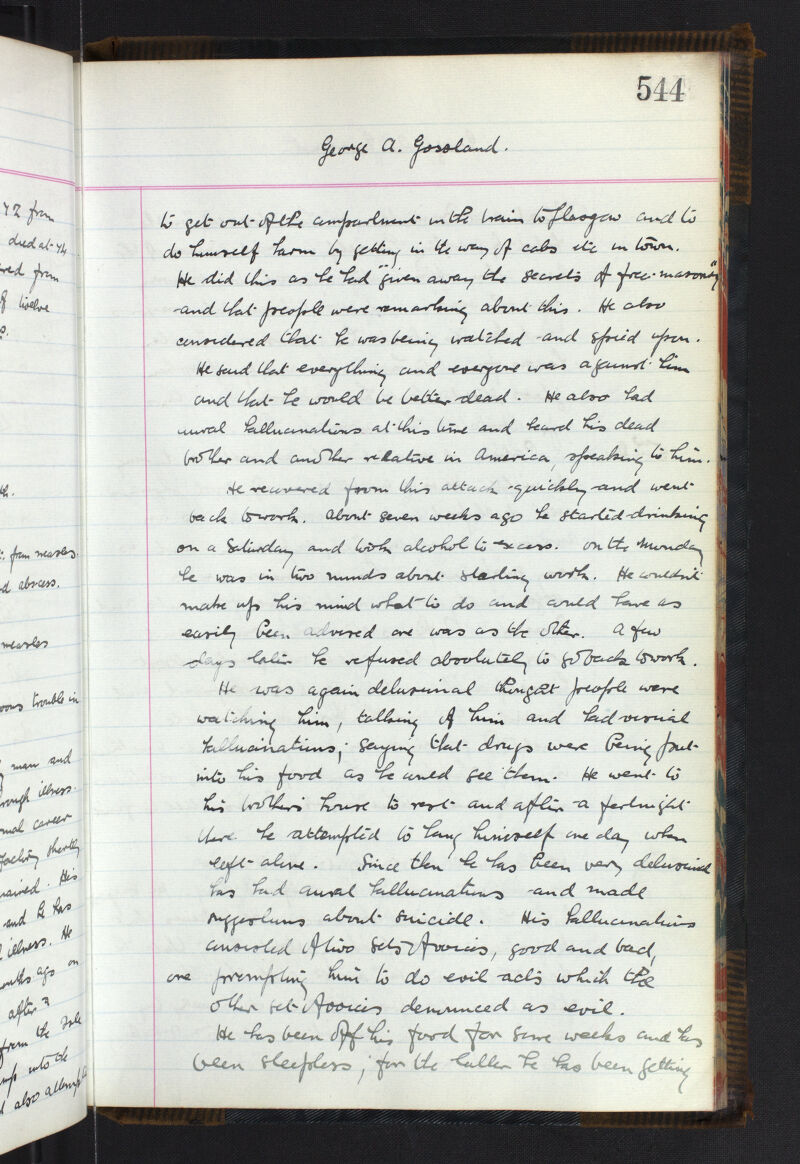 544
George A. Gossland.
to get out of the compartment in the train to Glasgow and to
do himself harm by getting in the way of cabs etc in town.
He did this as he had "given away the secrets of free-masonry"
and that people were remarking about this. He also
considered that he was being watched and spied upon.
He said that everything and everyone was against him
and that he would be better dead. He also had
aural hallucinations at this time and heard his dead
brother and another relative in America, speaking to him.
He recovered from this attack quickly and went
back to work. About seven weeks ago he started drinking
on a Saturday and took alcohol to excess. On the Monday
he was in two minds about starting work. He couldn't
make up his mind what to do and could have as
easily been advised one way as the other. A few
days later he refused absolutely to go back to work.
He was again delusional thought people were
watching him, talking of him and had visual
hallucinations; saying that drugs were being put
into his food as he could see them. He went to
his brother's house to rest and after a fortnight
there he attempted to hang himself one day when
left alone. Since then he has been very delusional
has had aural hallucinations and made
suggestions about suicide. His hallucinations
consisted of two sets of voices, good and bad,
one prompting him to do evil acts which the
other set of voices denounced as evil.
He has been off his food for some weeks and has
been sleepless; for the latter he has been getting
42 from
died at 44
from
of twelve
from measles.
abscess.
measles
trouble in
man and
through illness.
career
shortly
His
and he has
illness. He
months ago on
after a
from the
into the
also